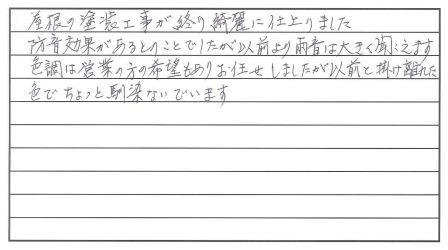 屋根の塗装工事が終り綺麗に仕上りました
防音効果があるとのことでしたが以前より雨音は大きく聞こえます
色調は営業の方の希望もありお任せしましたが以前と掛け離れた
色でちょっと馴染ないでいます